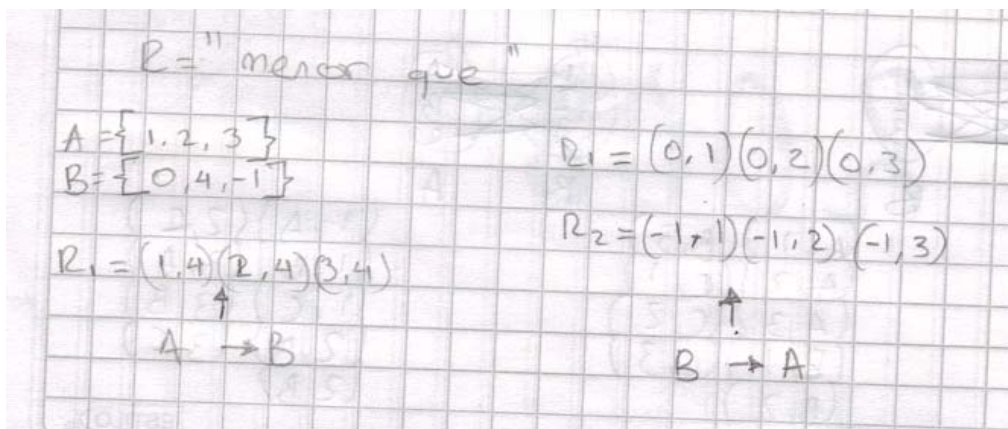 R = "menor que"
A = {1, 2, 3}
B = {0, 4, -1}
R1 = (1,4)(2,4)(3,4)
A → B
R1 = (0,1)(0,2)(0,3)
R2 = (-1,1)(-1,2)(-1,3)
B → A